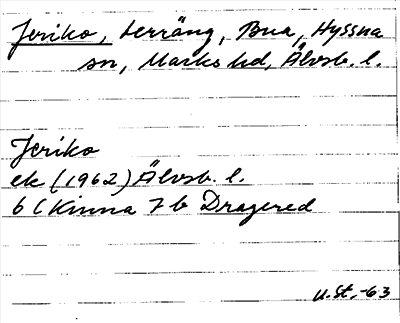 Jeriko, terräng, Bua, Hyssna
sn, Marks hd, Älvsb. l.
Jeriko
ek (1962) Älvsb. l.
6 C Kinna 7 b Dragered
U.St. -63